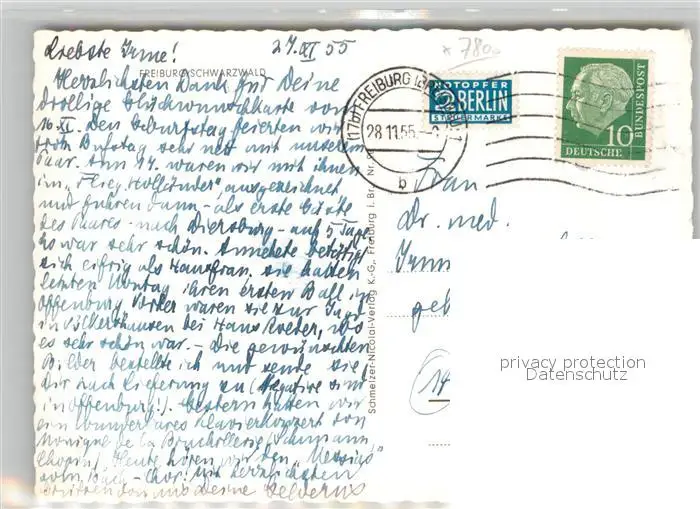 Liebste Irme! 27. XI 55
FREIBURG/SCHWARZWALD
Herzlichsten Dank für Deine
drollige Glückwunschkarte vom
16. XI. Den Geburtstag feierten wir
trotz Bußtag sehr nett mit unserem
Paar. Am 17. waren wir mit ihnen
im „Flieg. Holländer", ausgezeichnet
und fuhren dann – als erste Gäste
des Paares – nach Diersburg – auf 5 Tage
Es war sehr schön. Annchete betätigt
sich eifrig als Hausfrau. Sie hatten
letzten Montag ihren ersten Ball in
Offenburg. Vorher waren sie zur Jagd
in Volkertshausen bei Hans Roeder, wo
es sehr schön war. – Die gewünschten
Bilder bestellte ich und sende sie
Dir nach Lieferung zu (Negative sind
in Offenburg!). Gestern hatten wir
ein wunderbares Klavierkonzert von
Monique de la Bruchollerie (Schumann
Chopin). Heute hören wir den „Messias"
vom Bach-Chor. Mit herzlichsten
Grüßen von uns Deine
* 780
(17b) FREIBURG (BREISGAU) 1
28.11.55.
b
NOTOPFER
2 BERLIN
STEUERMARKE
10
DEUTSCHE
BUNDESPOST
Frau
Dr. med.
geb
(14
Schmelzer-Nicolai-Verlag K.-G., Freiburg i. Br. Nr.
privacy protection
Datenschutz